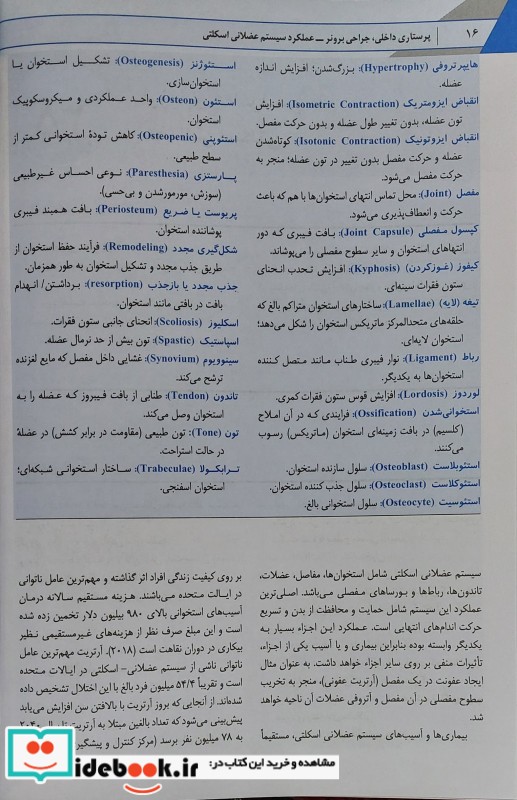 ۱۶ پرستاری داخلی، جراحی برونر ــ عملکرد سیستم عضلانی اسکلتی
هایپرتروفی (Hypertrophy): بزرگ‌شدن؛ افزایش اندازه
عضله.
انقباض ایزومتریک (Isometric Contraction): افزایش
تون عضله، بدون تغییر طول عضله و بدون حرکت مفصل.
انقباض ایزوتونیک (Isotonic Contraction): کوتاه‌شدن
عضله و حرکت مفصل بدون تغییر در تون عضله؛ منجر به
حرکت مفصل می‌شود.
مفصل (Joint): محل تماس انتهای استخوان‌ها با هم که باعث
حرکت و انعطاف‌پذیری می‌شود.
کپسول مفصلی (Joint Capsule): بافت فیبری که دور
انتهاهای استخوان و سایر سطوح مفصلی را می‌پوشاند.
کیفوز (غوزکردن) (Kyphosis): افزایش تحدب انحنای
ستون فقرات سینه‌ای.
تیغه (لایه) (Lamellae): ساختارهای استخوان متراکم بالغ که
حلقه‌های متحدالمرکز ماتریکس استخوان را شکل می‌دهد؛
استخوان لایه‌ای.
رباط (Ligament): نوار فیبری طناب مانند متصل کننده
استخوان‌ها به یکدیگر.
لوردوز (Lordosis): افزایش قوس ستون فقرات کمری.
استخوانی‌شدن (Ossification): فرایندی که در آن املاح
(کلسیم) در بافت زمینه‌ای استخوان (ماتریکس) رسوب
می‌کنند.
استئوبلاست (Osteoblast): سلول سازنده استخوان.
استئوکلاست (Osteoclast): سلول جذب کننده استخوان.
استئوسیت (Osteocyte): سلول استخوانی بالغ.
استئوژنز (Osteogenesis): تشکیل استخوان یا
استخوان‌سازی.
استئون (Osteon): واحد عملکردی و میکروسکوپیک
استخوان.
استئوپنی (Osteopenic): کاهش تودهٔ استخوانی کمتر از
سطح طبیعی.
پارستزی (Paresthesia): نوعی احساس غیرطبیعی
(سوزش، مورمورشدن و بی‌حسی).
پریوست یا ضریع (Periosteum): بافت همبند فیبری
پوشاننده استخوان.
شکل‌گیری مجدد (Remodeling): فرآیند حفظ استخوان از
طریق جذب مجدد و تشکیل استخوان به طور همزمان.
جذب مجدد یا بازجذب (resorption): برداشتن/ انهدام
بافت در بافتی مانند استخوان.
اسکلیوز (Scoliosis): انحنای جانبی ستون فقرات.
اسپاستیک (Spastic): تون بیش از حد نرمال عضله.
سینوویوم (Synovium): غشایی داخل مفصل که مایع لغزنده
ترشح می‌کند.
تاندون (Tendon): طنابی از بافت فیبروز که عضله را به
استخوان وصل می‌کند.
تون (Tone): تون طبیعی (مقاومت در برابر کشش) در عضلهٔ
در حالت استراحت.
ترابکولا (Trabeculae): ساختار استخوانی شبکه‌ای؛
استخوان اسفنجی.
سیستم عضلانی اسکلتی شامل استخوان‌ها، مفاصل، عضلات،
تاندون‌ها، رباط‌ها و بورساهای مفصلی می‌باشد. اصلی‌ترین
عملکرد این سیستم شامل حمایت و محافظت از بدن و تسریع
حرکت اندام‌های انتهایی است. عملکرد این اجزاء بسیار به
یکدیگر وابسته بوده بنابراین بیماری و یا آسیب یکی از اجزاء،
تأثیرات منفی بر روی سایر اجزاء خواهد داشت. به عنوان مثال
ایجاد عفونت در یک مفصل (آرتریت عفونی)، منجر به تخریب
سطوح مفصلی در آن مفصل و آتروفی عضلات آن ناحیه خواهد
شد.
بیماری‌ها و آسیب‌های سیستم عضلانی اسکلتی، مستقیماً
بر روی کیفیت زندگی افراد اثر گذاشته و مهم‌ترین عامل ناتوانی
در ایالت متحده می‌باشند. هزینه مستقیم سالانه درمان
آسیب‌های استخوانی بالای ۹۸۰ بیلیون دلار تخمین زده شده
است و این مبلغ صرف نظر از هزینه‌های غیرمستقیمی نظیر
بیکاری در دوران نقاهت است (۲۰۱۸). آرتریت مهم‌ترین عامل
ناتوانی ناشی از سیستم عضلانی- اسکلتی در ایالات متحده
است و تقریباً ۵۴/۴ میلیون فرد بالغ با این اختلال تشخیص داده
شده‌اند. از آنجایی که بروز آرتریت با بالافتن سن افزایش می‌یابد
پیش‌بینی می‌شود که تعداد بالغین مبتلا به آرتریت تا سال ۲۰۴۰
به ۷۸ میلیون نفر برسد (مرکز کنترل و پیشگیری
مشاهده و خرید این کتاب در:
iidebook.ir